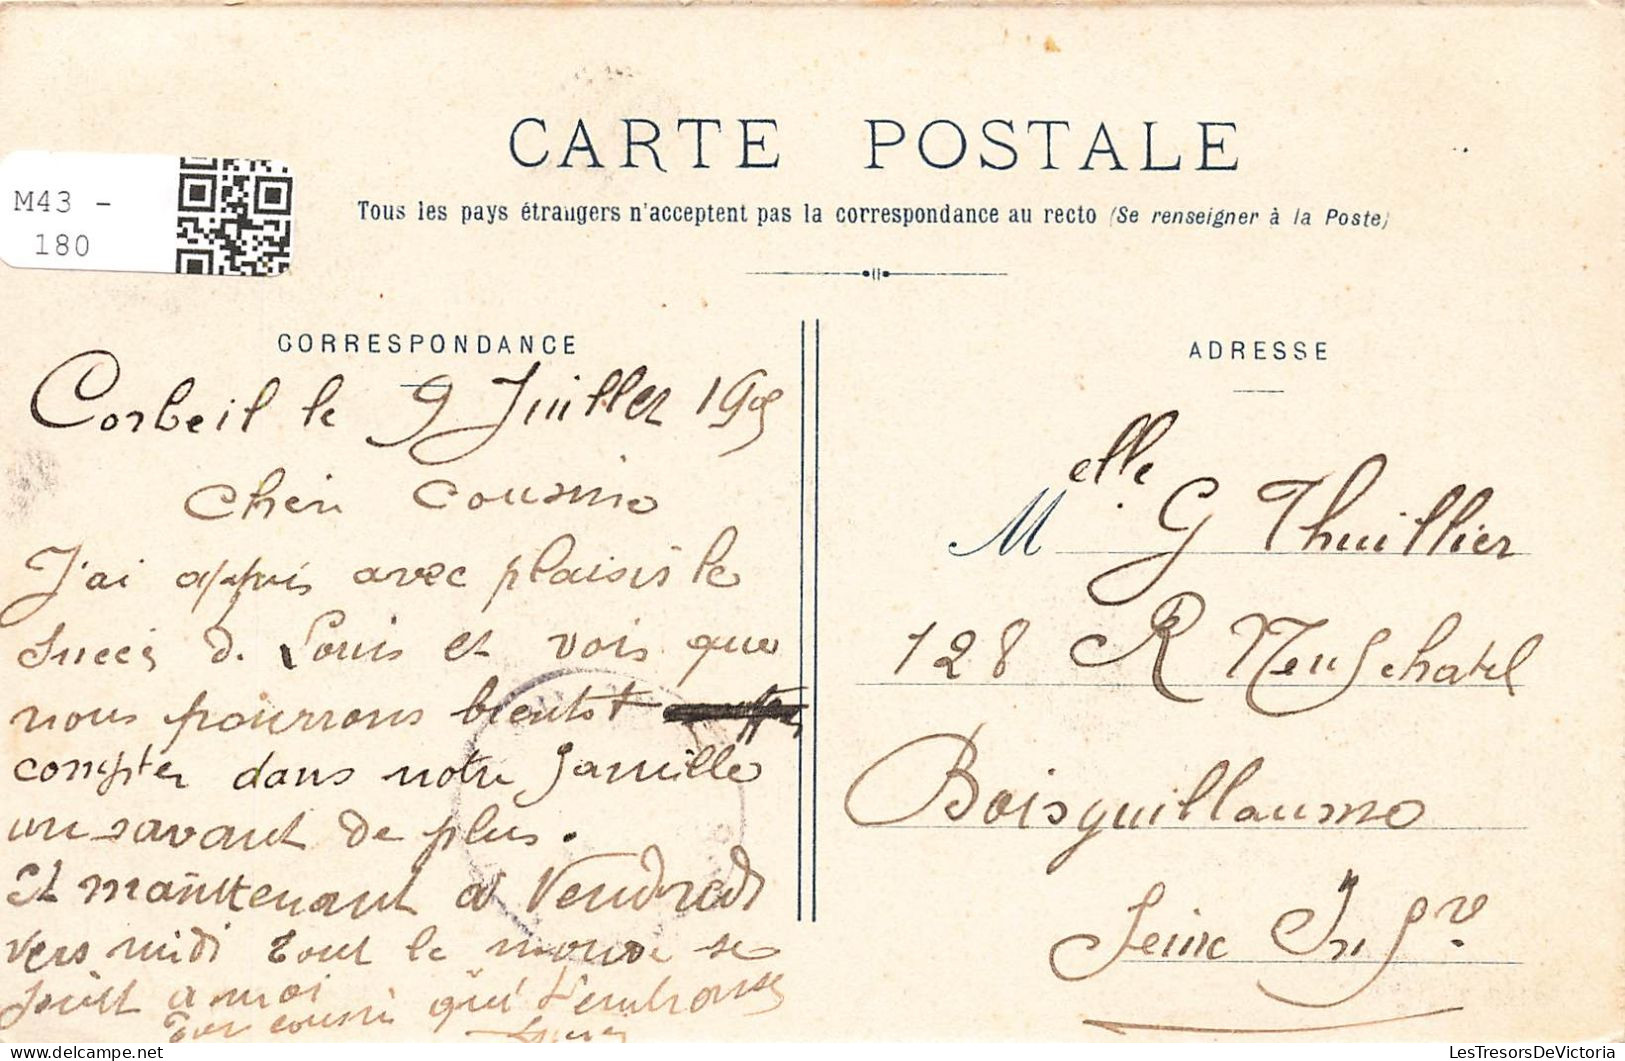 CARTE POSTALE
Tous les pays étrangers n'acceptent pas la correspondance au recto (Se renseigner à la Poste)
M43 -
180
CORRESPONDANCE
Corbeil le 9 Juillet
Cousine
J'ai appris avec plaisir le
succès de Louis et vois que
nous pourrons bientot
compter dans notre famille
un savant de plus.
Et maintenant a Vendredi
vers midi tout le monde se
joint a moi
Ton cousin qui t'embrasse
ADRESSE
Melle G Thuillier
128 R Neufchatel
Boisguillaume
Seine Infre
LesTresorsDeVictoria